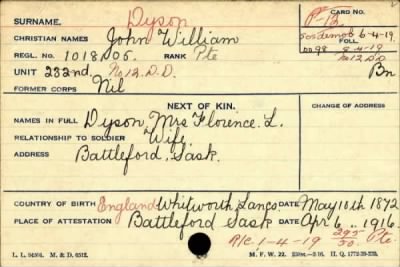 SURNAME. Dyson CARD NO.
CHRISTIAN NAMES John William P-B.
REGL. NO. 1018005. RANK Pte sosdemob 6-4-19
FOLL.
UNIT 232nd. No 12. D.D. 8-4-19
No12 DD
Bn
FORMER CORPS Nil
NEXT OF KIN. CHANGE OF ADDRESS
NAMES IN FULL Dyson Mrs Florence. L.
RELATIONSHIP TO SOLDIER Wife.
ADDRESS Battleford, Sask.
COUNTRY OF BIRTH England Whitworth Lancs DATE May 10th 1872
PLACE OF ATTESTATION Battleford Sask DATE Apr 6.. 1916.
R/C. 1-4-19 295/50. Pte.
L. L. 94504. M. & D. 6512. M. F. W. 22. H. Q. 1772-39-339.